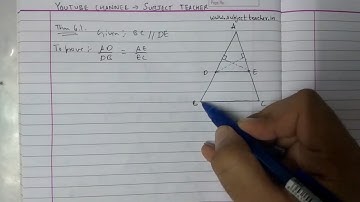 YOUTUBE CHANNEL → SUBJECT TEACHER
www.subjectteacher.in
Thm 6.1 Given :- BC // DE
To prove :- AD/DB = AE/EC
A
D E
B C